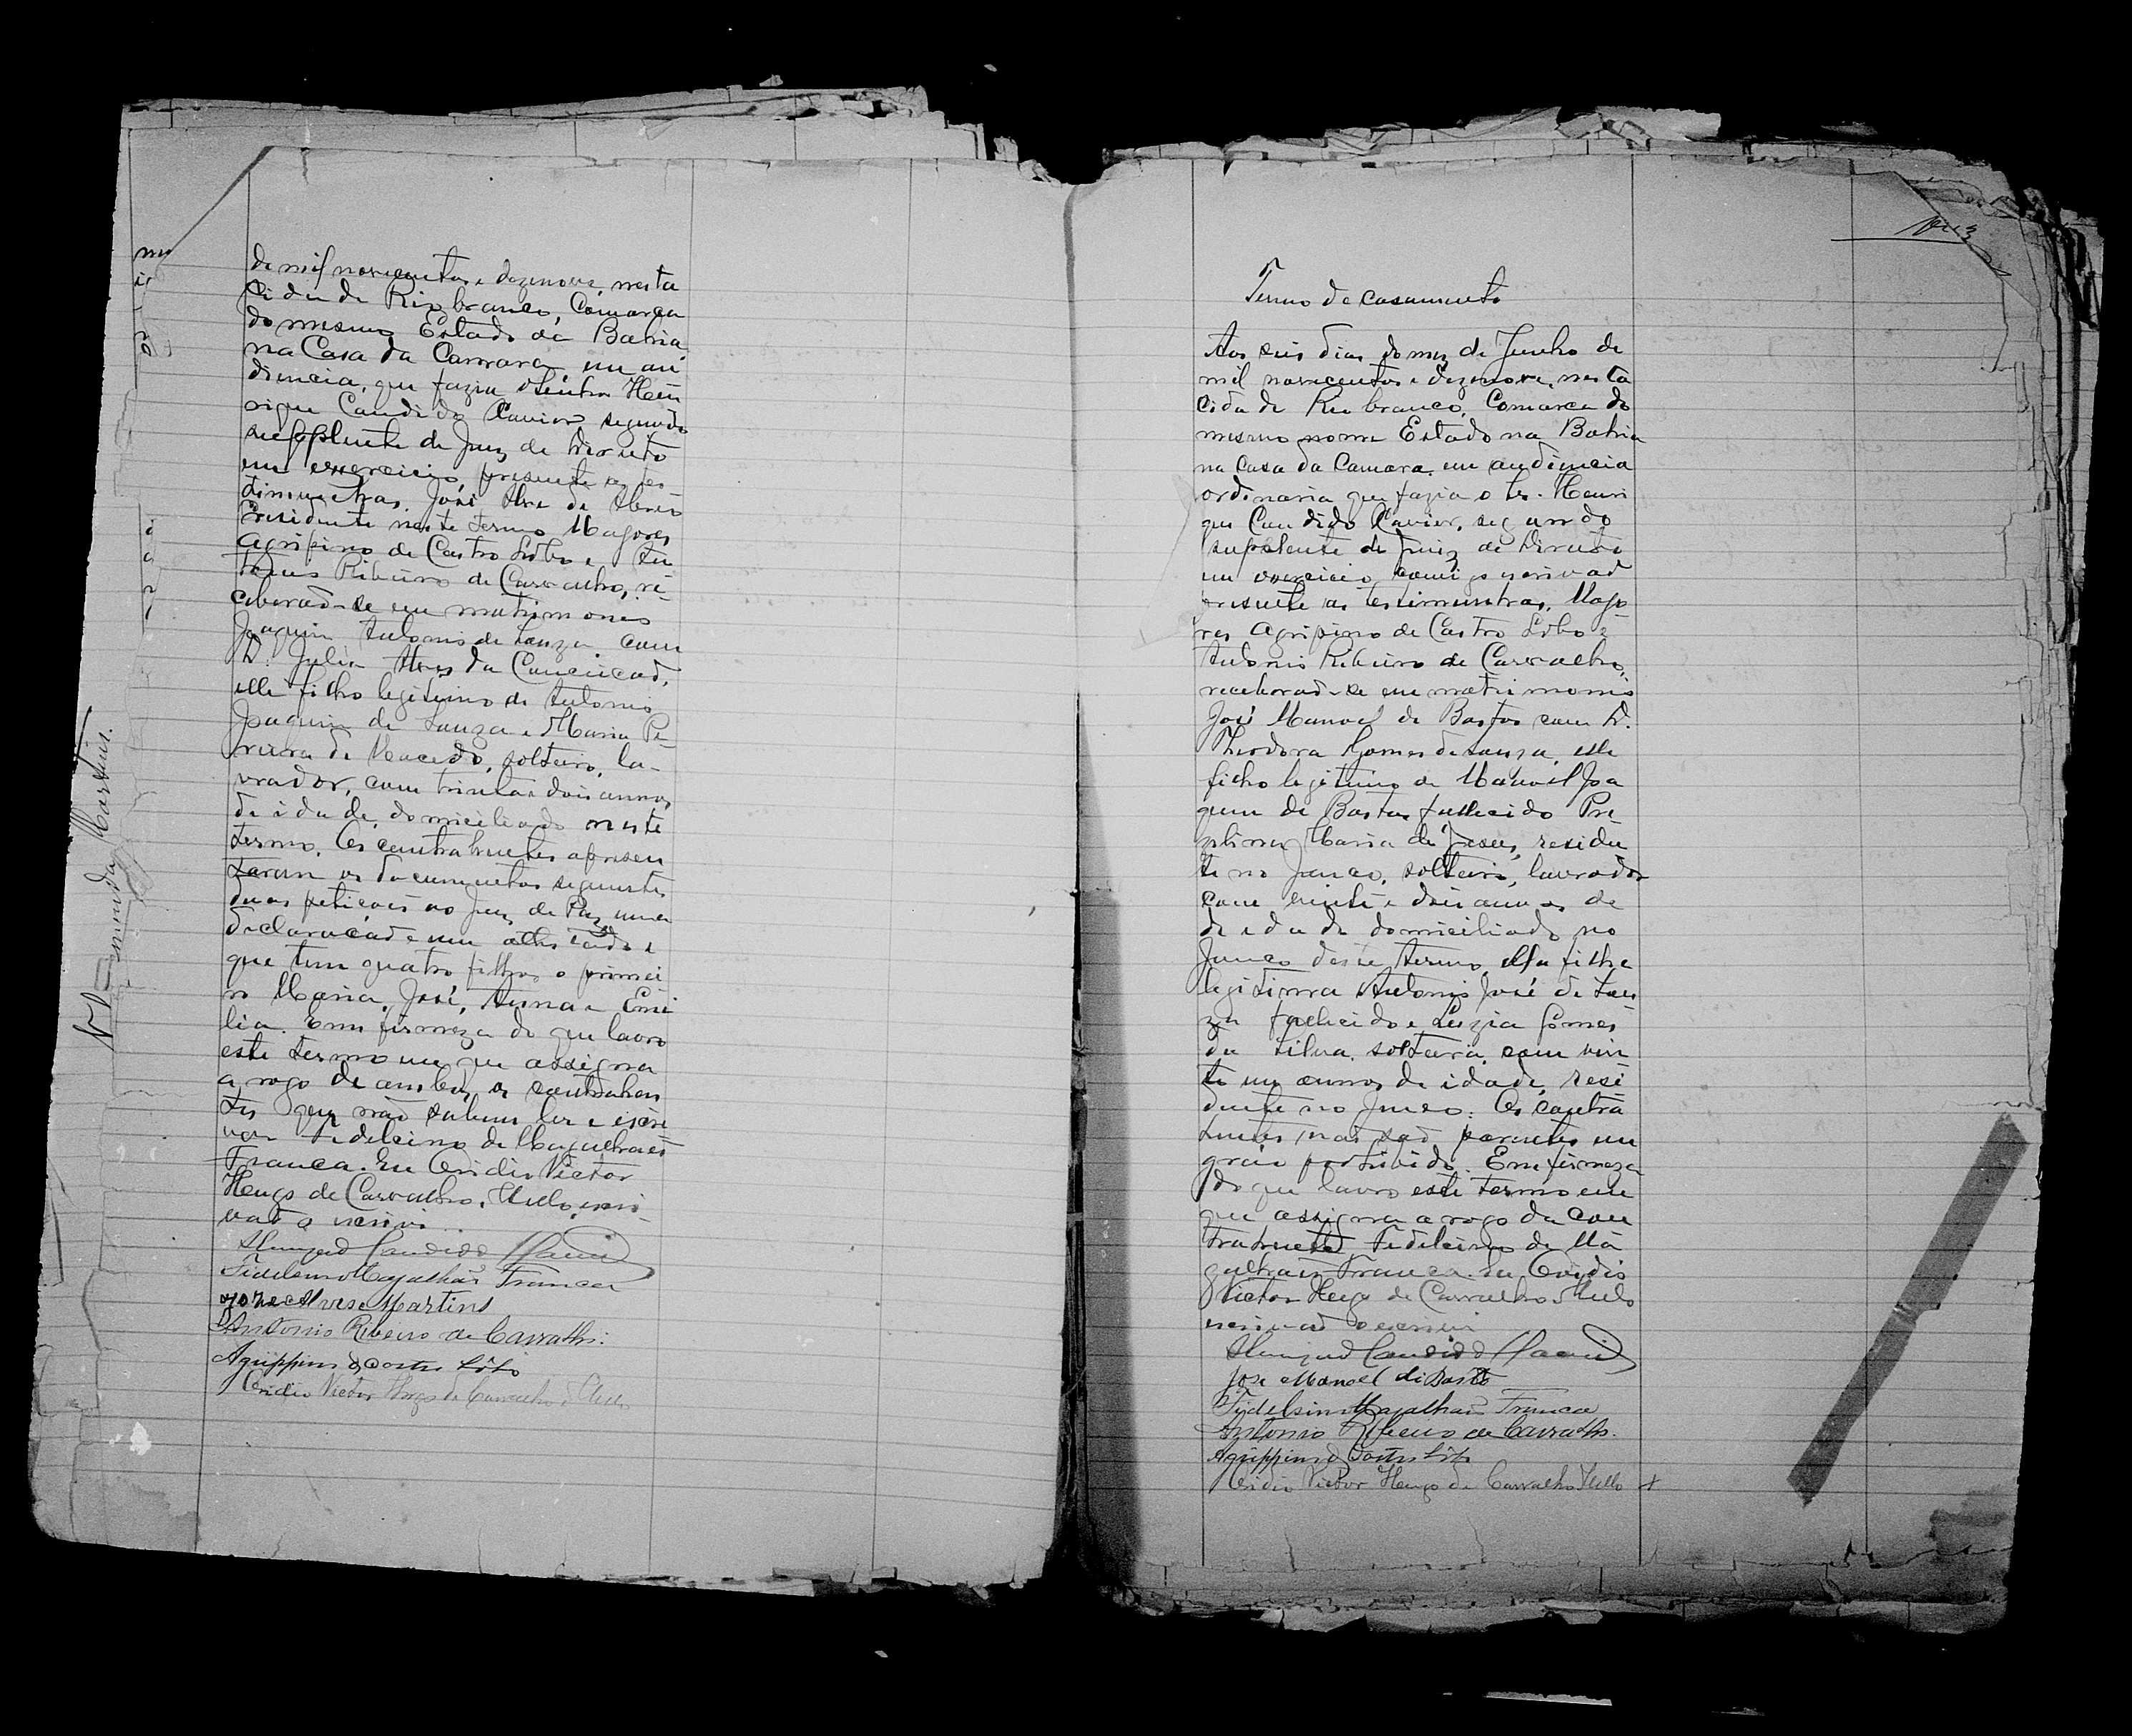 de mil novecentos e dezenove, nesta
cidade de Rio branco, Comarca
do mesmo Estado da Bahia
na Casa da Camara, em au
diencia, que fazia o Senhor Hen
rique Candido Xavier segundo
supplente de Juiz de Direito
em exercicio, presente as tes
timunhas, José
residente neste termo Majores
Agripino de Castro Lobo e An
tonio Ribeiro de Carvalho, re
ceberaõ-se em matrimonio
Joaquim Antonio de Souza com
D. Julia Alves da Conceiçaõ,
elle filho legitimo de Antonio
Joaquim de Souza e Maria Pe
reira de Macedo, solteiro, la-
vrador, com trinta e dois annos
de idade, domiciliado neste
termo. Os contrahentes apresen
taram os documentos seguintes
duas petiçoes ao Juiz de Paz uma
declaraçaõ e um attestado e
que tem quatro filhos o primei
ro Maria, José, Anna e Emi
lia. Em firmeza do que lavro
este termo em que assigna
a rogo de ambos os contrahen
tes que não sabem ler e escre
ver Fidelcino de Magalhaes
Franca. Eu Ovidio Victor
Hugo de Carvalho Mello, escri-
vaõ o escrivi
Candido Xavier
Fidelsino Magalhães Franca
José Alves Martins
Antonio Ribeiro de Carvalho.
Agrippino de Castro Lôbo
Ovidio Victor Hugo de Carvalho Mello
Martins.
Termo de casamento
Aos seis dias do mez de Junho de
mil novecentos e dezenove, nesta
cidade Rio branco, Comarca do
mesmo nome Estado na Bahia
na Casa da Camara em audiencia
ordinaria que fazia o Sr. Henri
que Candido Xavier, segundo
supplente de Juiz de Direito
em exercicio, comigo escrivaõ
presente as testimunhas, Majo
res Agripino de Castro Lobo e
Antonio Ribeiro de Carvalho,
receberaõ-se em matrimonio
José Manoel de Bastos com D.
Theodora Gomes de Souza, elle
filho legitimo de Manoel Joa
quim de Bastos fallecido
Maria de Jesus, residen
te no Junco, solteiro, lavrador
com vinte e dois annos de
de idade domiciliado no
Junco deste termo, ella filha
legitima Antonio José de Sou
za fallecido e Luzia Gomes
da Silva, solteira, com vin
te um annos de idade, resi
dente no Junco. Os contra
hentes não saõ parentes em
gráo prohibido. Em firmeza
do que lavro este termo em
que assigna a rogo da con
trahente Fidelcino de Ma
galhaes Franca. Eu Ovidio
Victor Hugo de Carvalho Mello
escrivaõ o escrivi
Candido Xavier
José Manoel de Bastos
Fidelsino Magalhães Franca
Antonio Ribeiro de Carvalho.
Agrippino de Castro Lôbo
Ovidio Victor Hugo de Carvalho Mello